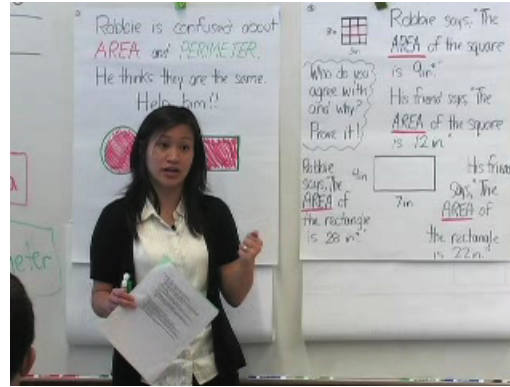 Robbie is confused about
AREA and PERIMETER.
He thinks they are the same.
Help him!!
eter
3in
3in
Who do you
agree with
and why?
Prove it!
Robbie says, "The
AREA of the square
is 9in²."
His friend says, "The
AREA of the square
is 12 in."
Robbie
says, "The
AREA of
the rectangle
is 28 in²."
4in
7in
His friend
says, "The
AREA of
the rectangle
is 22in."